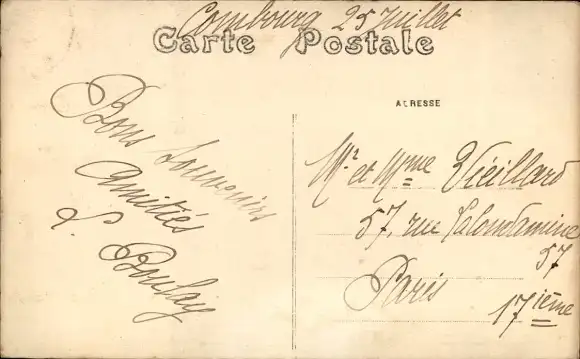 Combourg 25 Juillet
Carte Postale
ADRESSE
Bons Souvenirs
Amitiés
L. Boulay
Mr et Mme Vieillard
57, rue Lacondamine
57
Paris
17ième